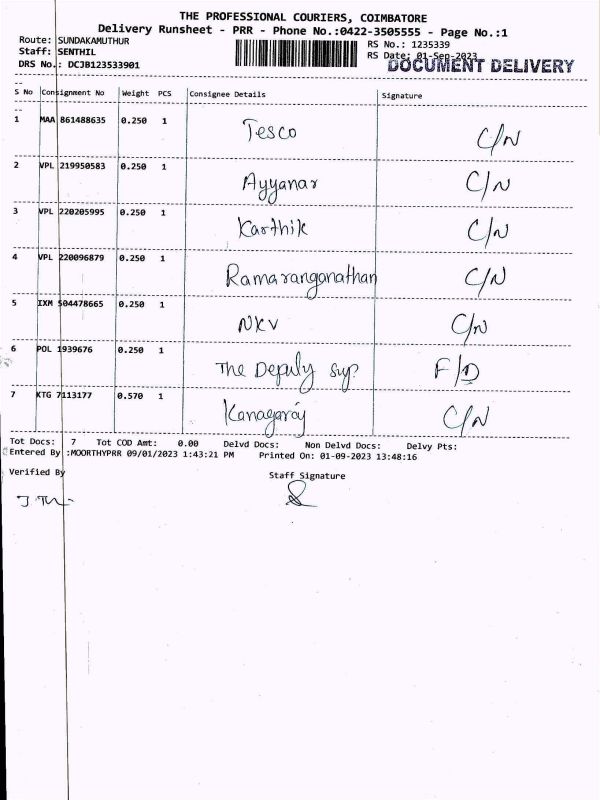 THE PROFESSIONAL COURIERS, COIMBATORE
Delivery Runsheet - PRR - Phone No.:0422-3505555 - Page No.:1
Route: SUNDAKAMUTHUR
RS No.: 1235339
Staff: SENTHIL
RS Date: 01-Sep-2023
DRS No.: DCJB123533901
DOCUMENT DELIVERY
S No Consignment No Weight PCS Consignee Details Signature
1 MAA 861488635 0.250 1 Tesco C/N
2 VPL 219950583 0.250 1 Ayyanar C/N
3 VPL 220205995 0.250 1 Karthik C/N
4 VPL 220096879 0.250 1 Ramaranganathan C/N
5 IXM 504478665 0.250 1 NKV C/N
6 POL 1939676 0.250 1 The Deputy Sup. F/D
7 KTG 7113177 0.570 1 Kanagaraj C/N
Tot Docs: 7 Tot COD Amt: 0.00 Delvd Docs: Non Delvd Docs: Delvy Pts:
Entered By :MOORTHYPRR 09/01/2023 1:43:21 PM Printed On: 01-09-2023 13:48:16
Verified By Staff Signature